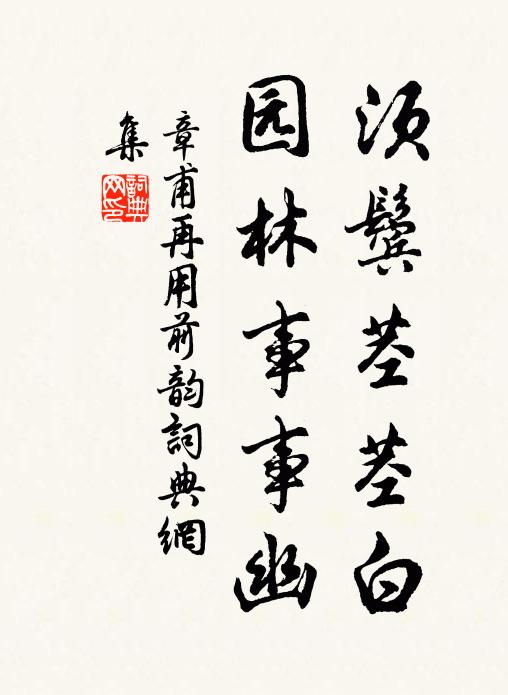 须鬓茎茎白
园林事事幽
章甫再用前韵词典網
集
詞典网印